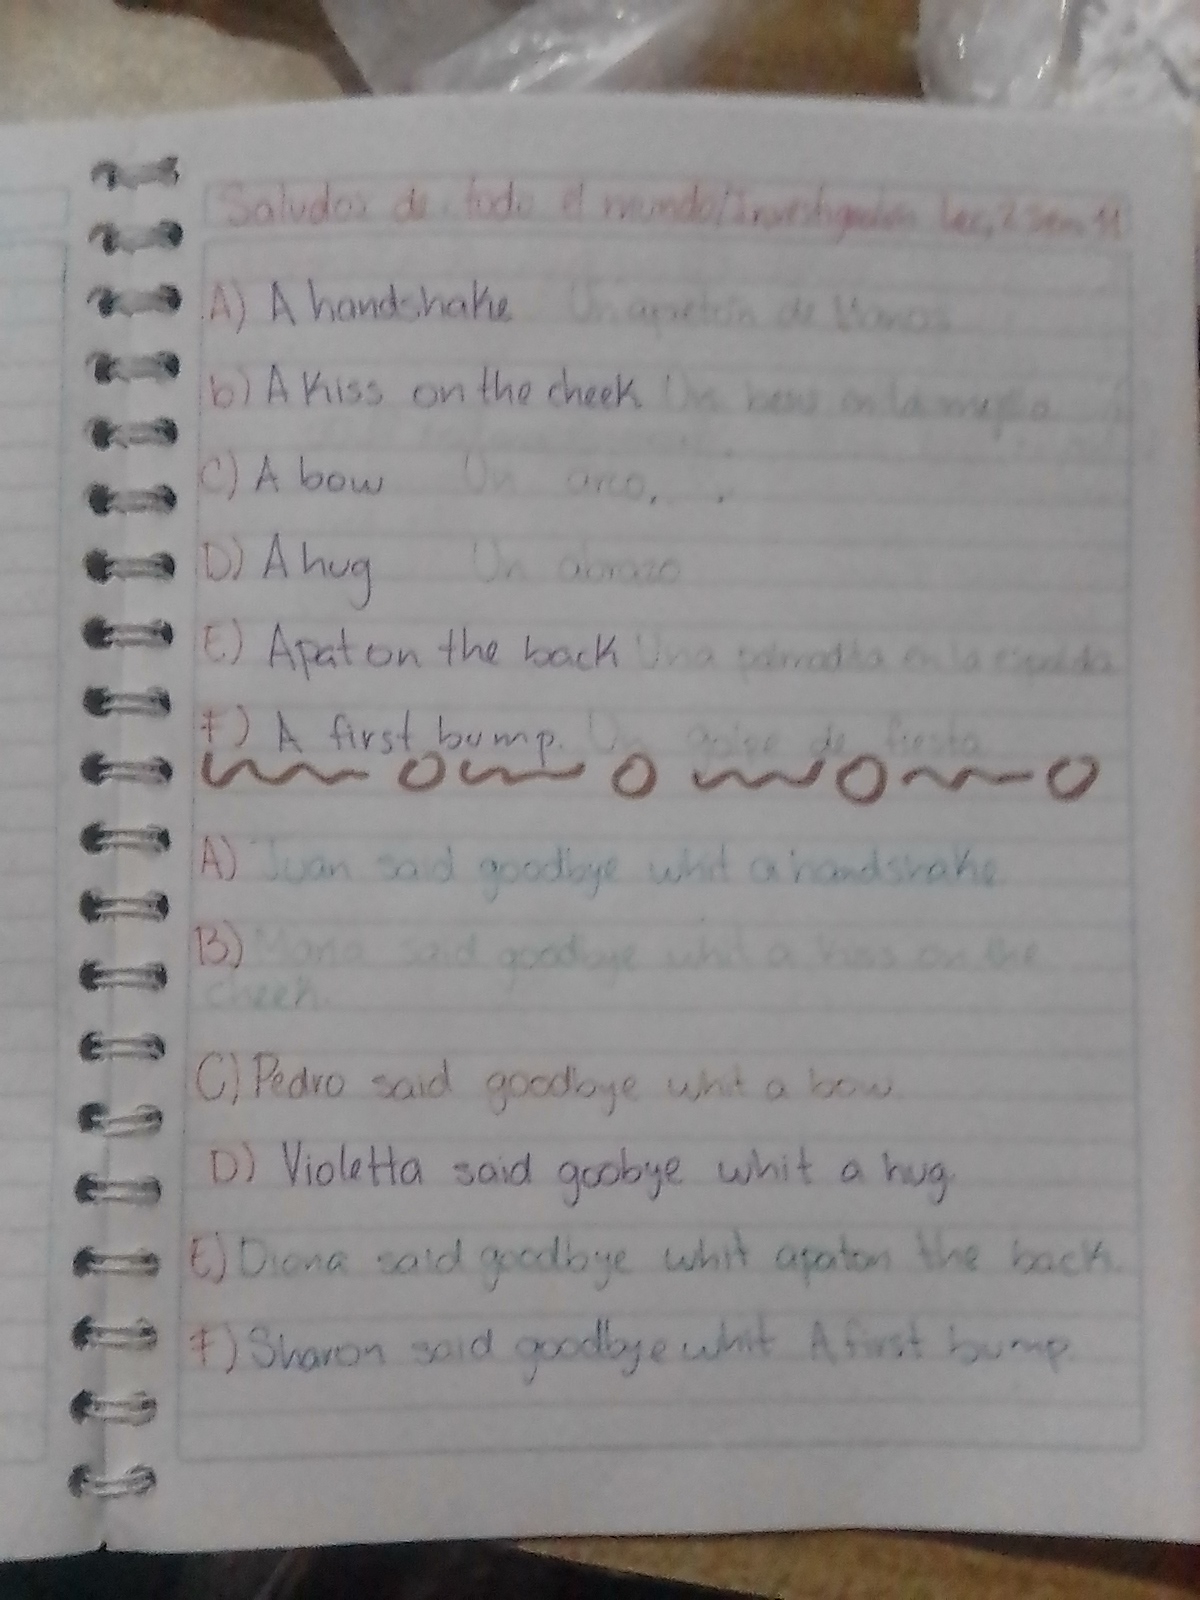 Saludos de todo el mundo/Investigación Lec, 2 Sem 11
A) A handshake Un apretón de Manos
b) A Kiss on the cheek Un beso en la mejilla
C) A bow Un arco.
D) A hug Un abrazo
E) Apat on the back Una palmadita en la espalda
F) A first bump. Un golpe de fiesta
A) Juan said goodbye whit a handshake
B) Maria said goodbye whit a kiss on the
cheek.
C) Pedro said goodbye whit a bow.
D) Violetta said goobye whit a hug.
E) Diana said goodbye whit apaton the back.
F) Sharon said goodbye whit A first bump.